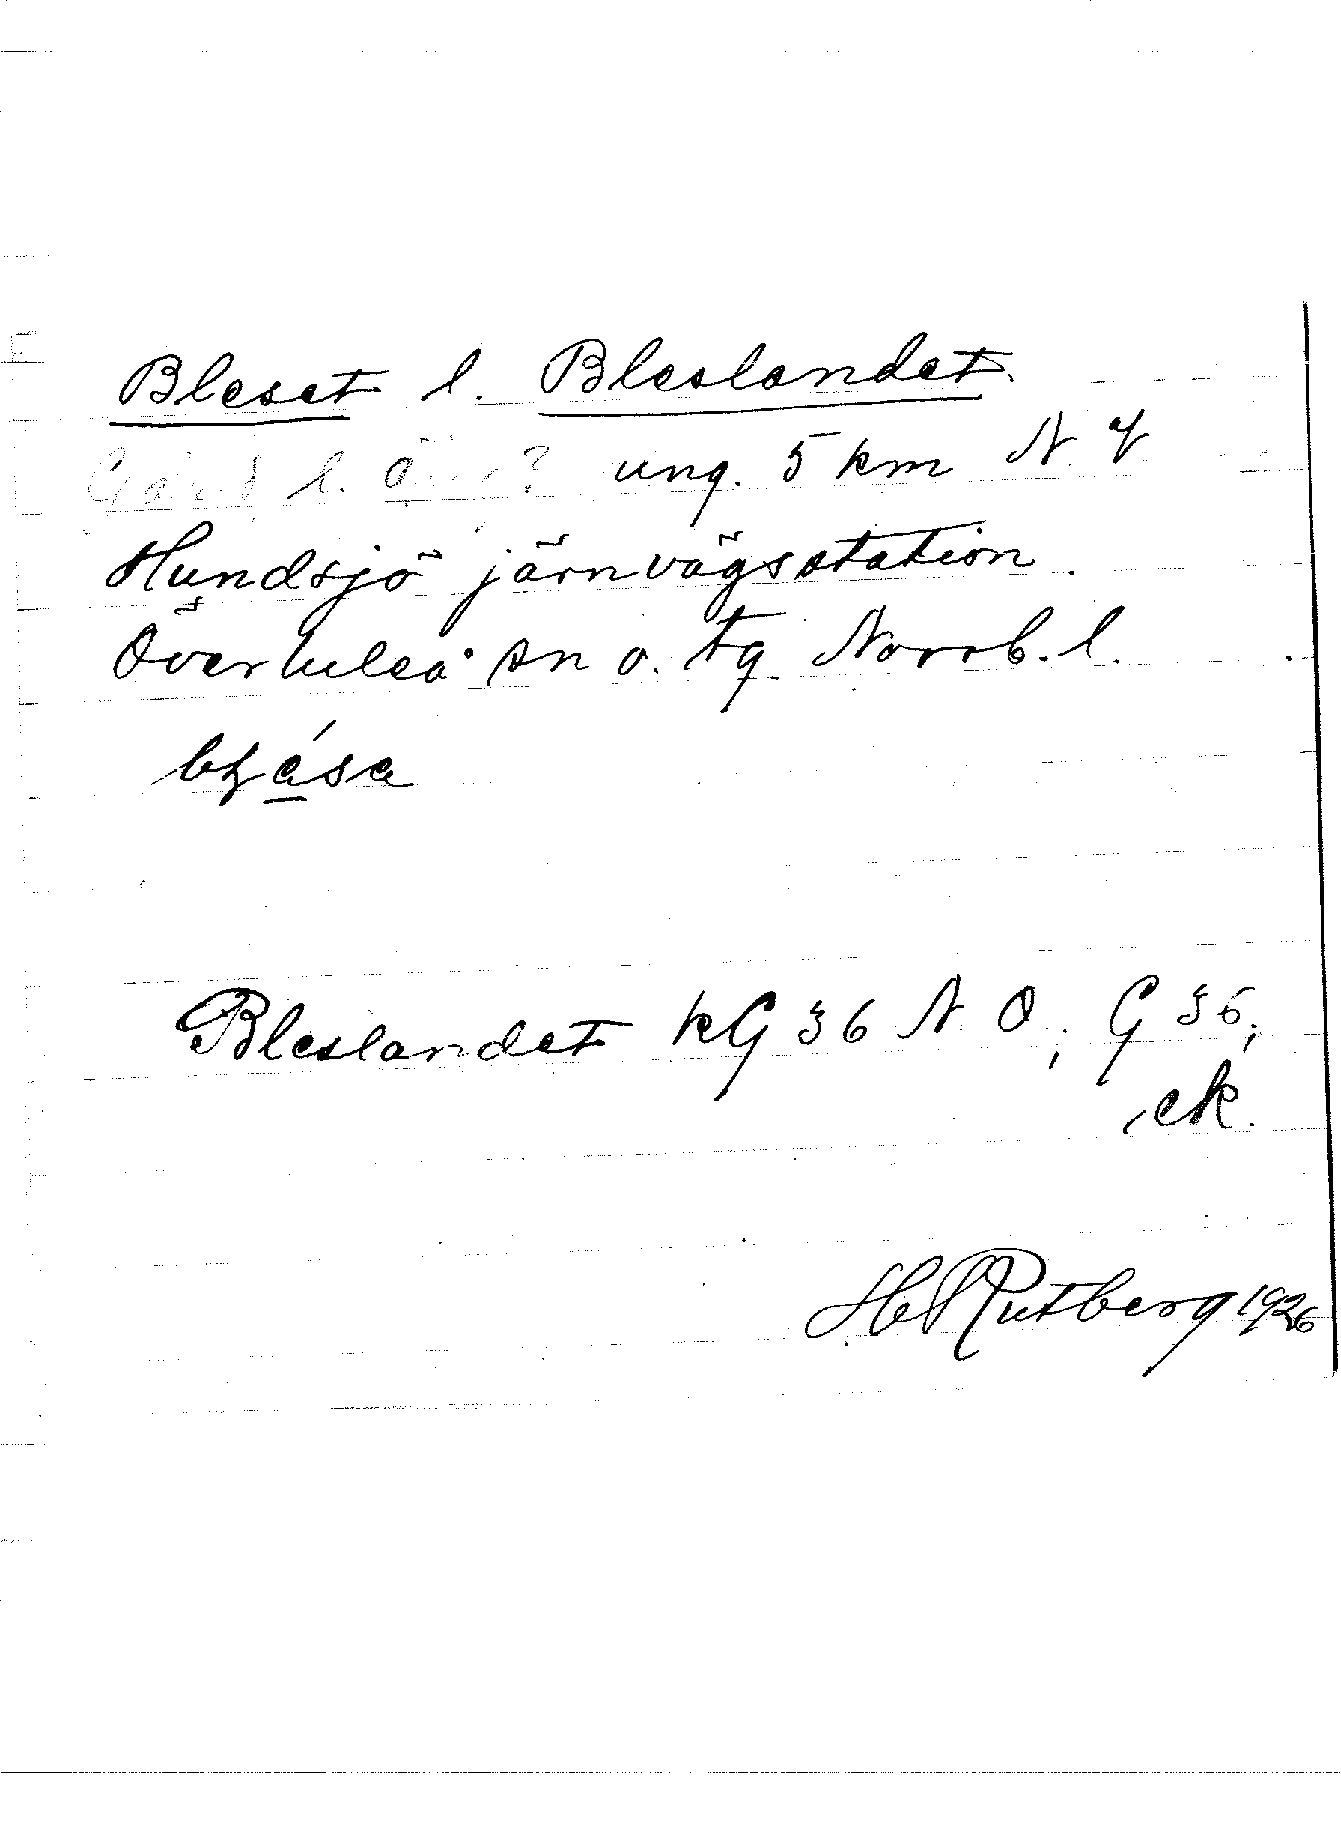 Bleset l. Bleslandet
Gård l. ung. 5 km N
Hundsjö järnvägsstation.
Överluleå sn o. tg Norrb. l.
Bleslandet kG 36 N O; G 36;
ek.
H Rutberg 1926